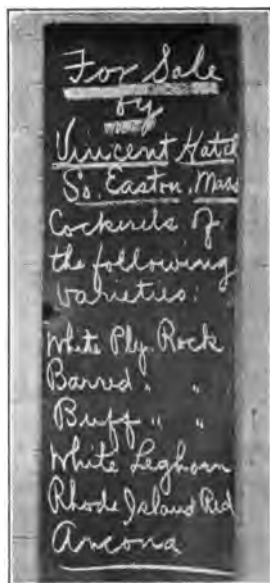 For Sale
by
Vincent Hatch
So. Easton, Mass
Cockerels of
the following
varieties:
White Ply. Rock
Barred " "
Buff " "
White Leghorn
Rhode Island Red
Ancona